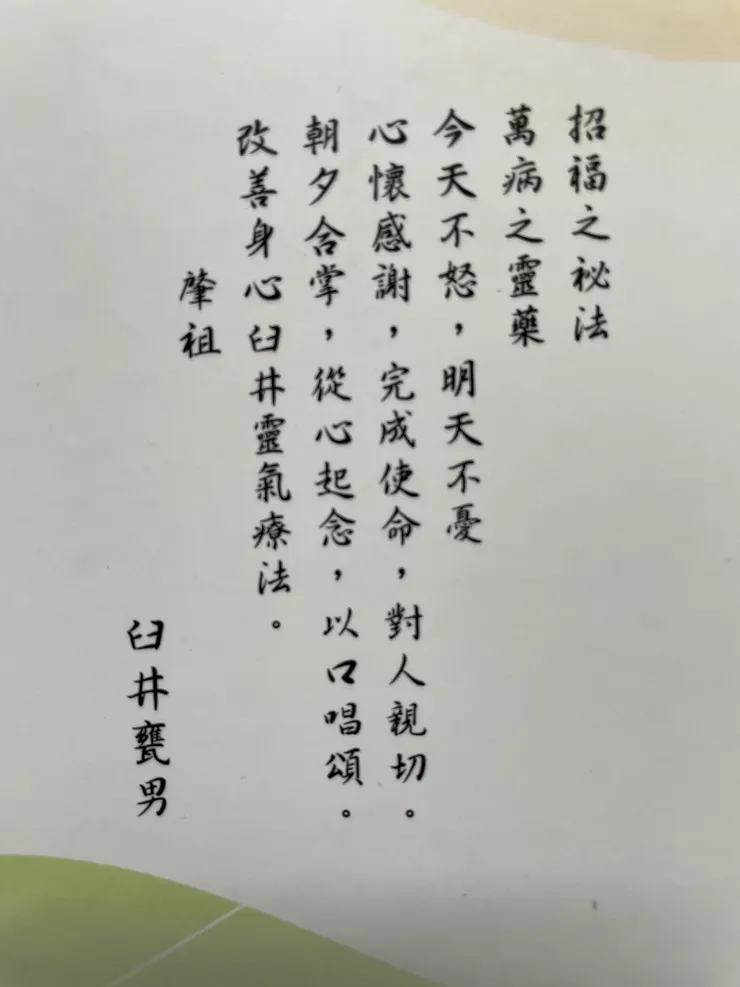 招福之祕法
萬病之靈藥
今天不怒，明天不憂
心懷感謝，完成使命，對人親切。
朝夕合掌，從心起念，以口唱頌。
改善身心臼井靈氣療法。
肇祖
臼井甕男